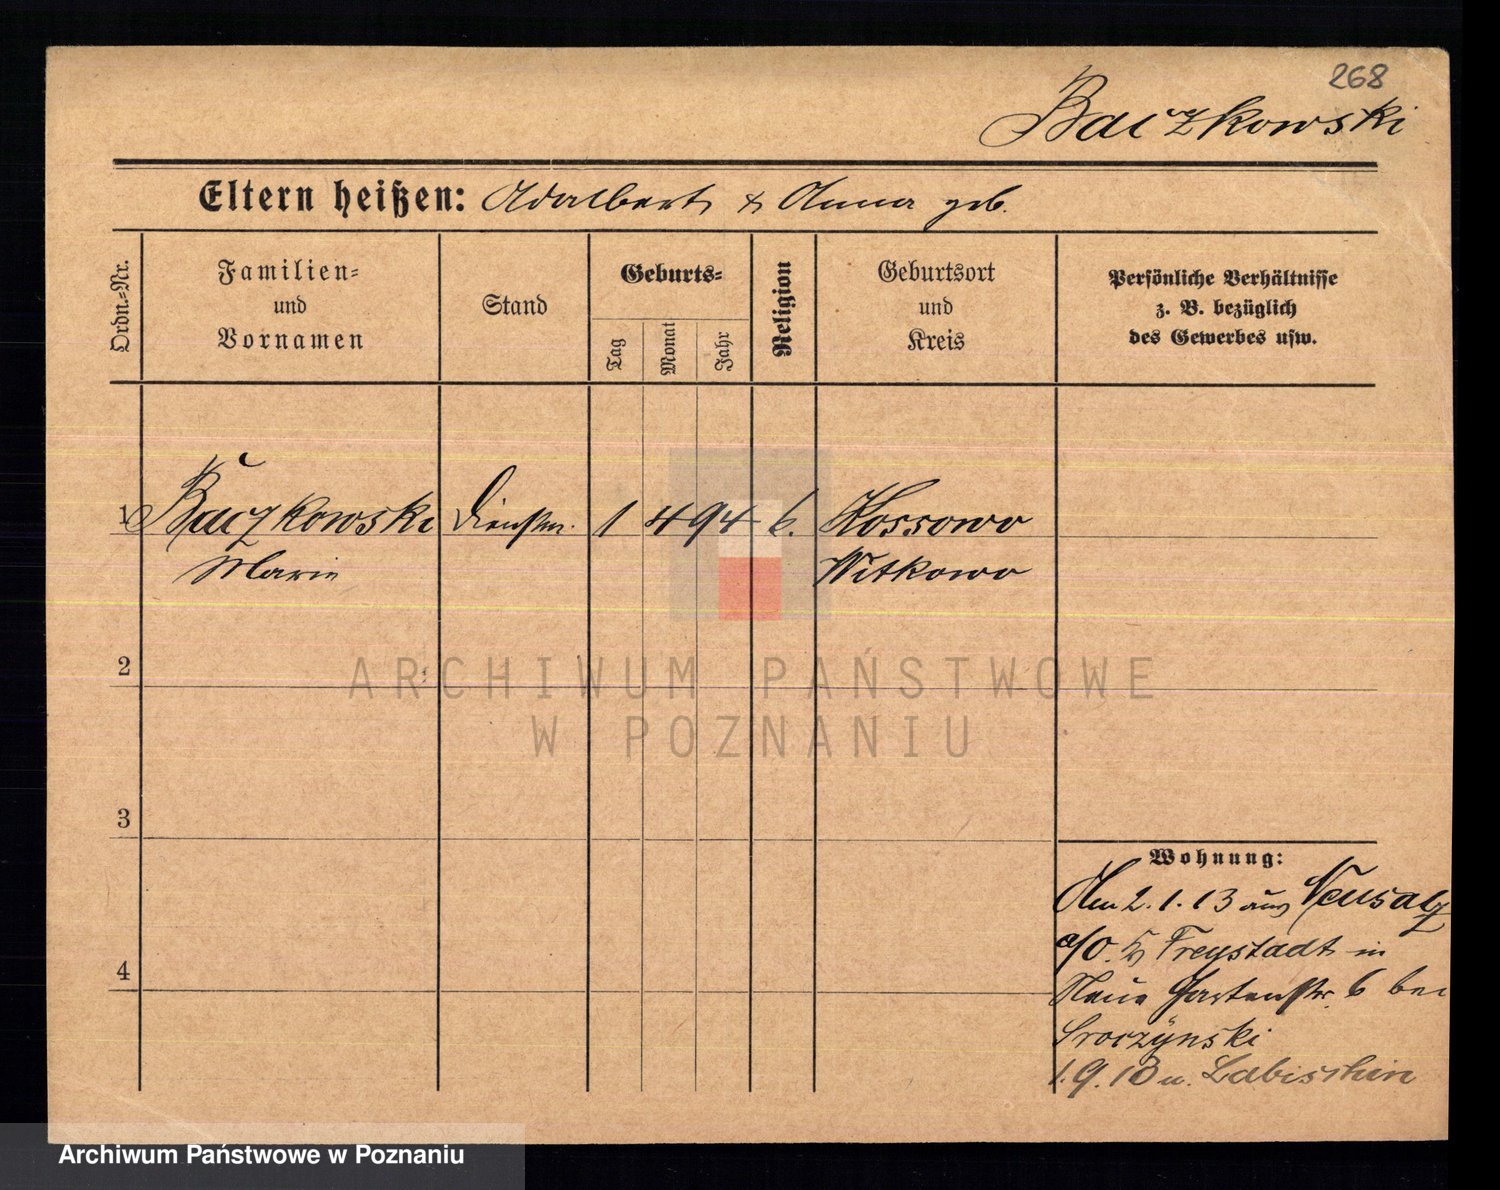 268
Baczkowski
Eltern heißen: Adalbert & Anna geb.
Ordn.-Nr.
Familien-
und
Vornamen
Stand
Geburts-
Tag
Monat
Jahr
Religion
Geburtsort
und
Kreis
Persönliche Verhältnisse
z. B. bezüglich
des Gewerbes usw.
1 Baczkowski Dienstm. 1 4 94 k. Kossowo
Marie Witkowo
2
ARCHIWUM PAŃSTWOWE
W POZNANIU
3
Wohnung:
Am 2.1.13 aus Neusalz
a/O. Freystadt in
Neue Gartenstr. 6 bei
Sroczynski
1.9.13 n. Labischin
4
Archiwum Państwowe w Poznaniu